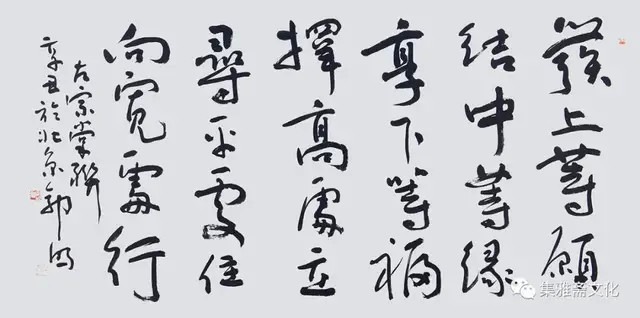 發上等願
結中等緣
享下等福
擇高處立
尋平處住
向寬處行
左宗棠聯
辛丑於北京郭鸿
集雅斋文化